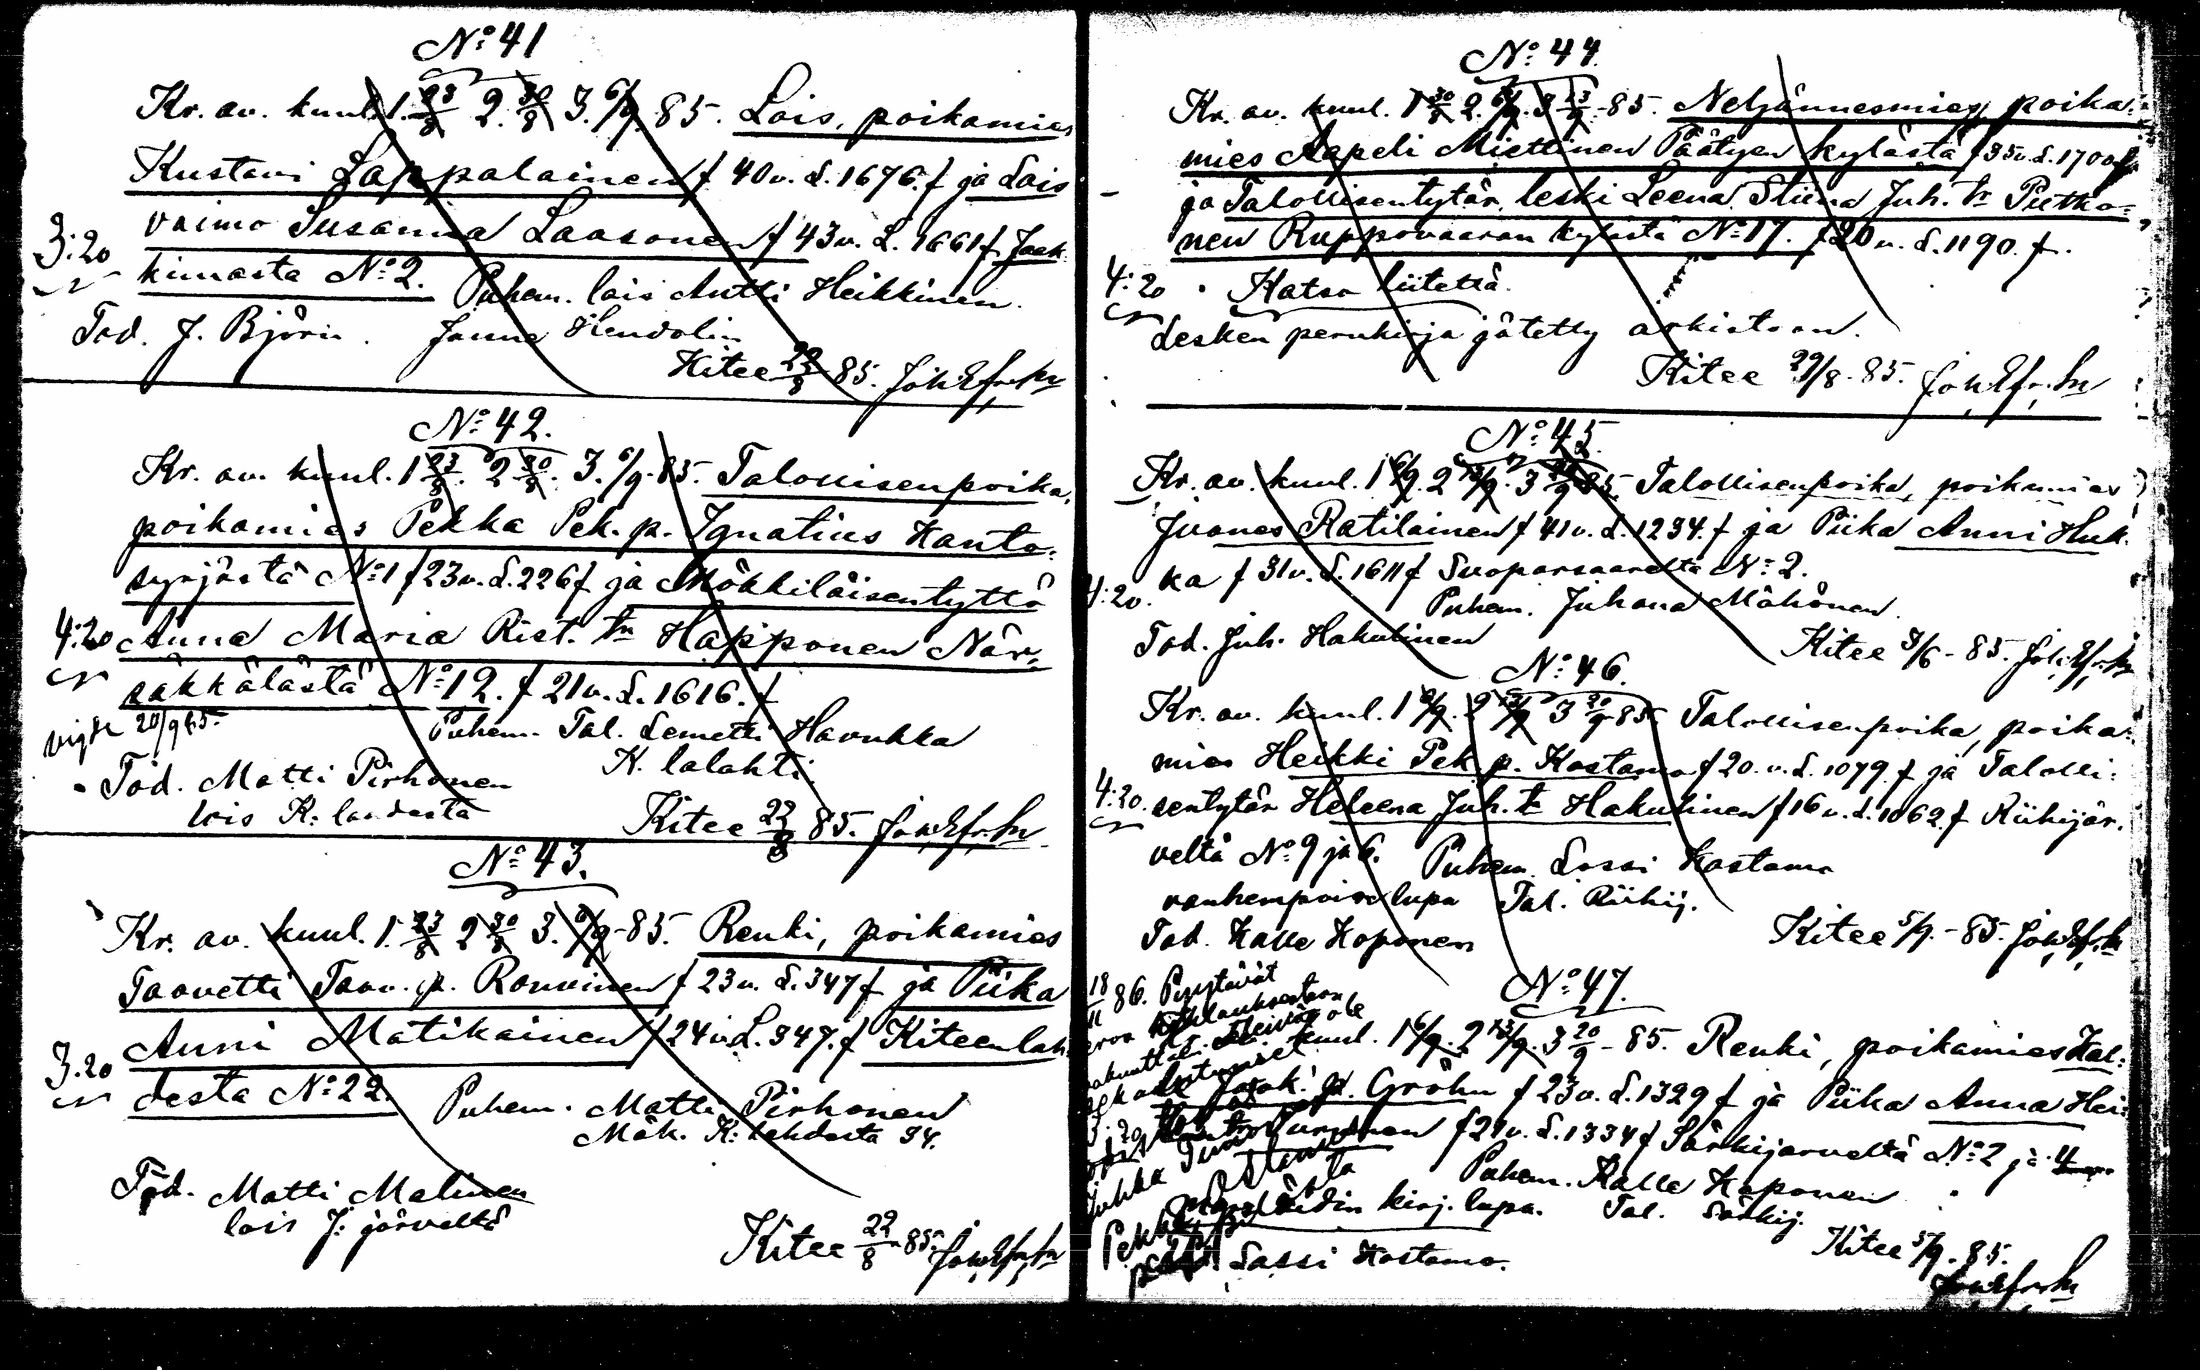 No 41
Kr. av. kuul. 1. 23/8 2. 30/8 3. 6/9 85. Lois, poikamies
Kustavi Lappalainen f 40 v. L. 1676. f ja Lois
vaimo Susanna Laasonen f 43 v. L. 1661 f Jaak-
3:20
kimasta No 2. Puhem. lois Antti Heikkinen.
Tod. J. Björn. Janne Hendolin
Kitee 22/8 85.
No 42.
Kr. av. kuul. 1 23/8. 2 30/8. 3. 6/9. 85. Talollisenpoika,
poikamies Pekka Pek. p. Ignatius Kanto-
syrjästä No 1 f 23 v. L. 226 f ja Mökkiläisentyttö
4:20 Anna Maria Rist. tr Happonen När-
säkkälästä No 12. f 21 v. L. 1616. f
vigde 20/9 85.
Puhem. Tal. Lemetti Havukka
K. lalahti
Tod. Matti Pirhonen
lois K: landesta
Kitee 22/8 85.
No 43.
Kr. av. kuul. 1. 23/8 2 30/8 3. 6/9 - 85. Renki, poikamies
Taavetti Taav. p. Rouvinen f 23 v. L. 347 f ja Piika
Anni Matikainen f 24 v. L. 347. f Kiteenlah-
3.20
desta No 22. Puhem. Matti Pirhonen
Mök. K: lahdesta 34.
Tod. Matti Malinen
lois J: järveltä
Kitee 22/8 85.
No 44.
Kr. av. kuul. 1 30/8 2. 6/9. 3 13/9 - 85. Neljännesmies, poika-
mies Aapeli Miettinen Päätyen kylästä f 35 v. L. 1700 f
ja Talollisentytär, leski Leena Stiina Juh. tr Putko-
nen Ruppovaaran kylästä No 17. f 20 v. L. 1190. f.
4:20 Katso liitettä.
Lesken perukirja jätetty arkistoon.
Kitee 29/8 - 85.
No 45.
Kr. av. kuul. 1 6/9. 2 13/9. 3 20/9 85. Talollisenpoika, poikamies
Juanes Ratilainen f 41 v. L. 1234. f ja Piika Anni Huk-
4:20. ka f 31 v. L. 1611 f Suoparsaarelta No 2.
Puhem. Juhana Mähönen.
Tod. Juh. Hakulinen
Kitee 5/6 - 85.
No 46.
Kr. av. kuul. 1 6/9. 2 13/9 3 20/9 85 Talollisenpoika, poika-
mies Heikki Pek. p. Kostamo f 20. v. L. 1079. f ja Talolli-
4:20. sentytär Heleena Juh. tr Hakulinen f 16 v. L. 1062. f Riihijär-
veltä No 9 ja 6. Puhem. Lassi Kostamo
vanhempain lupa Tal. Riihij.
Tod. Kalle Koponen
Kitee 5/9. - 85.
No 47.
18/11 86. Pyytävät
eron kihlauksestaan
kuul. 1 6/9. 2 13/9. 3 20/9 - 85. Renki, poikamies Kal-
Jaak. p. Gröhn f 23 v. L. 1329 f ja Piika Anna Hei-
3:20 Turunen f 21 v. L. 1334 f Särkijarveltä No 2 ja 4
Puhem. Kalle Koponen
kirj. lupa. Tal. Särkij.
Lassi Kostamo.
Kitee 5/9. 85.